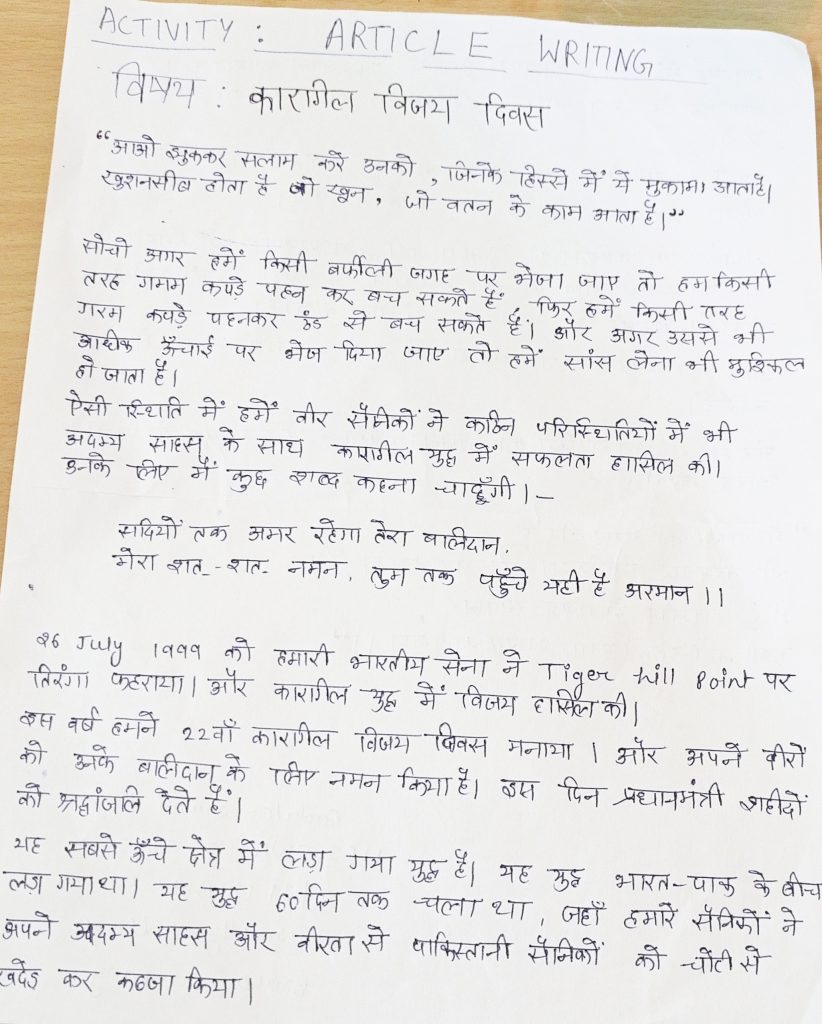 ACTIVITY : ARTICLE WRITING
विषय : कारागील विजय दिवस
“आओ झुककर सलाम करें उनको, जिनके हिस्से में ये मुकाम आता है।
खुशनसीब होता है वो खून, जो वतन के काम आता है।”
सोचो अगर हमें किसी बर्फीली जगह पर भेजा जाए तो हम किसी
तरह गमम कपड़े पहन कर बच सकते हैं, फिर हमें किसी तरह
गरम कपड़े पहनकर ठंड से बच सकते हैं। और अगर उससे भी
आधीक ऊँचाई पर भेज दिया जाए तो हमें सांस लेना भी मुश्किल
हो जाता है।
ऐसी स्थिति में हमें वीर सैनीकों ने कठिन परिस्थितियों में भी
अदम्य साहस के साथ कारागील युद्ध में सफलता हासिल की।
उनके लिए मैं कुछ शब्द कहना चाहूँगी।-
सदियों तक अमर रहेगा तेरा बालिदान,
मेरा शत्-शत् नमन, तुम तक पहुँचे यही है अरमान ।।
26 July 1999 को हमारी भारतीय सेना ने Tiger hill Point पर
तिरंगा फहराया। और कारागील युद्ध में विजय हासिल की।
इस वर्ष हमने 22वाँ कारागील विजय दिवस मनाया। और अपने वीरों
को उनके बालिदान के लिए नमन किया है। इस दिन प्रधानमंत्री शहीदों
को श्रद्धांजलि देते हैं।
यह सबसे ऊँचे क्षेत्र में लड़ा गया युद्ध है। यह युद्ध भारत-पाक के बीच
लड़ा गया था। यह युद्ध 60 दिन तक चला था, जहाँ हमारे सैनिकों ने
अपने अदम्य साहस और वीरता से पाकिस्तानी सैनिकों को चोटी से
खदेड़ कर कब्जा किया।